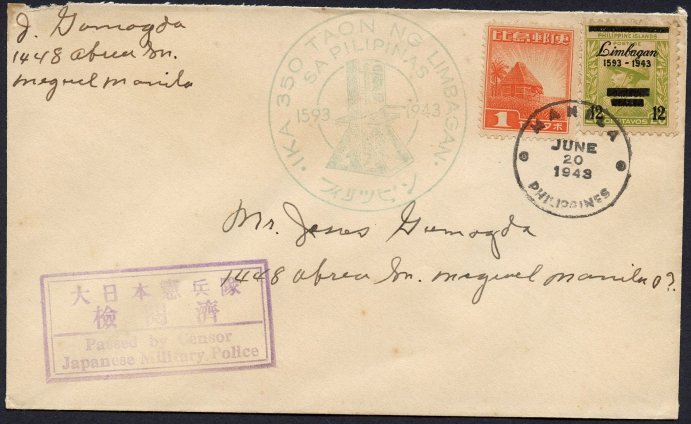 J. Gumogda
1448 Abrea Sn.
Meguel Manila
IKA 350 TAON NG LIMBAGAN
SA PILIPINAS
1593 1943
フィリッピン
比島郵便
1
PHILIPPINE ISLANDS
POSTAGE
Limbagan
1593 - 1943
12 12
CENTAVOS
MANILA
JUNE
20
1943
PHILIPPINES
Mr. Jesus Gumogda
1448 Abrea Sn. Meguel Manila
大日本憲兵隊
檢閲濟
Passed by Censor
Japanese Military Police